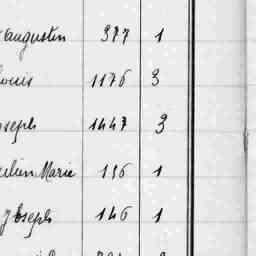 augustin 377 1
Louis 1176 3
Joseph 1447 3
Marie 136 1
Joseph 146 1